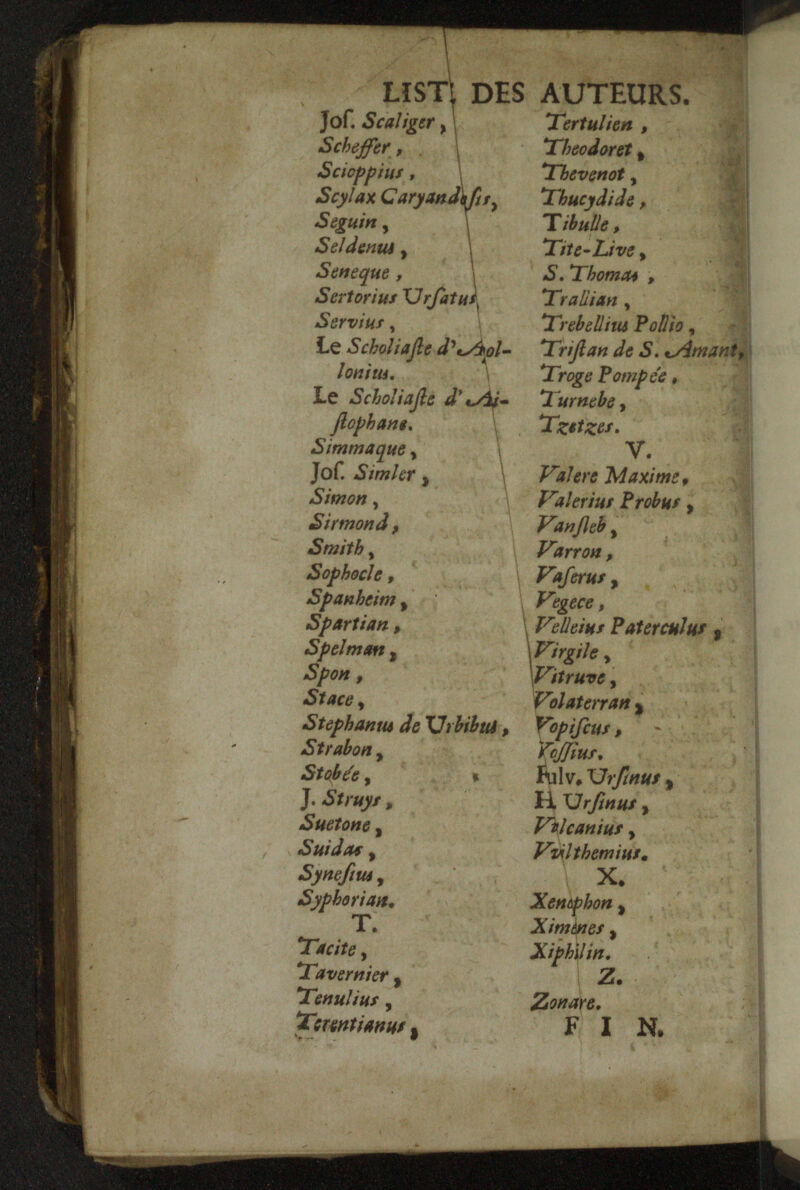 LIST. DES AUTEURS.
Joſ. Scaliger,
Scheffer,
Scioppius,
Scylax Caryandeſis,
Seguin,
Seldenus,
Seneque,
Sertorius Urſatus
Servius,
Le Scholiaſte d'Apol-
lonius.
Le Scholiaſte d'Ai-
ſtophane.
Simmaque,
Joſ. Simler,
Simon,
Sirmond,
Smith,
Sophocle,
Spanheim,
Spartian,
Spelman,
Spon,
Stace,
Stephanus de Urbibus,
Strabon,
Stobée,
J. Struys,
Suetone,
Suidas,
Syneſius,
Syphorian.
T.
Tacite,
Tavernier,
Tenulius,
Terentianus,
Tertulien,
Theodoret,
Thevenot,
Thucydide,
Tibulle,
Tite-Live,
S. Thomas,
Trallian,
Trebellius Pollio,
Triſtan de S. Amant,
Troge Pompée,
Turnebe,
Tzetzes.
V.
Valere Maxime,
Valerius Probus,
Vanſleb,
Varron,
Vaſerus,
Vegece,
Velleius Paterculus,
Virgile,
Vitruve,
Volaterran,
Vopiſcus,
Voſſius.
Fulv. Urſinus,
H. Urſinus,
Vulcanius,
Vvilthemius.
X.
Xenophon,
Ximenes,
Xiphilin.
Z.
Zonare.
FIN.